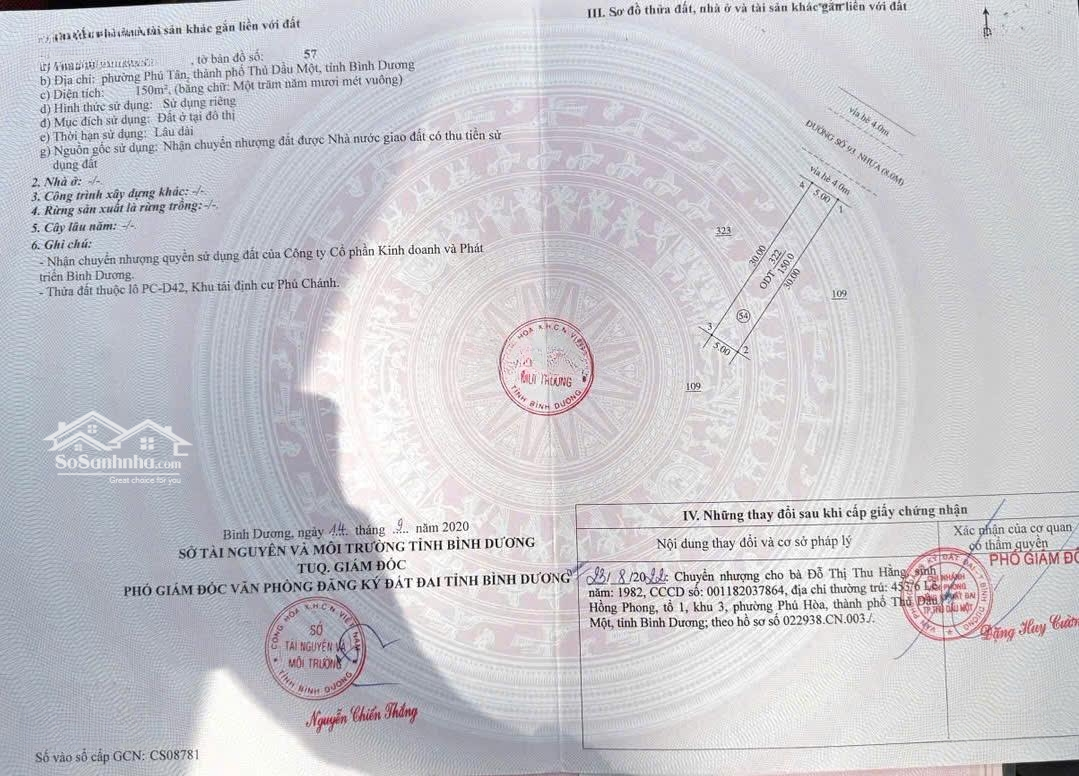 tài sản khác gắn liền với đất
, tờ bản đồ số: 57
b) Địa chỉ: phường Phú Tân, thành phố Thủ Dầu Một, tỉnh Bình Dương
c) Diện tích: 150m², (bằng chữ: Một trăm năm mươi mét vuông)
d) Hình thức sử dụng: Sử dụng riêng
đ) Mục đích sử dụng: Đất ở tại đô thị
e) Thời hạn sử dụng: Lâu dài
g) Nguồn gốc sử dụng: Nhận chuyển nhượng đất được Nhà nước giao đất có thu tiền sử
dụng đất
2. Nhà ở: -/-
3. Công trình xây dựng khác: -/-
4. Rừng sản xuất là rừng trồng: -/-.
5. Cây lâu năm: -/-
6. Ghi chú:
- Nhận chuyển nhượng quyền sử dụng đất của Công ty Cổ phần Kinh doanh và Phát
triển Bình Dương.
- Thửa đất thuộc lô PC-D42, Khu tái định cư Phú Chánh.
SoSanhnha.com
Great choice for you
Bình Dương, ngày 14 tháng 9 năm 2020
SỞ TÀI NGUYÊN VÀ MÔI TRƯỜNG TỈNH BÌNH DƯƠNG
TUQ. GIÁM ĐỐC
PHÓ GIÁM ĐỐC VĂN PHÒNG ĐĂNG KÝ ĐẤT ĐAI TỈNH BÌNH DƯƠNG
CỘNG HÒA X.H.C.N VIỆT NAM
SỞ
TÀI NGUYÊN VÀ
MÔI TRƯỜNG
TỈNH BÌNH DƯƠNG
Nguyễn Chiến Thắng
Số vào sổ cấp GCN: CS08781
III. Sơ đồ thửa đất, nhà ở và tài sản khác gắn liền với đất
vỉa hè 4.0m
ĐƯỜNG SỐ 93, NHỰA (8.0M)
vỉa hè 4.0m
4
5.00
1
323
30.00
ODT 322
150.0
30.00
109
54
3
5.00
2
109
TỈNH BÌNH DƯƠNG
IV. Những thay đổi sau khi cấp giấy chứng nhận
Nội dung thay đổi và cơ sở pháp lý
Xác nhận của cơ quan
có thẩm quyền
23/8/2022: Chuyển nhượng cho bà Đỗ Thị Thu Hằng, sinh
năm: 1982, CCCD số: 001182037864, địa chỉ thường trú: 453/6 Lê
Hồng Phong, tổ 1, khu 3, phường Phú Hòa, thành phố Thủ Dầu
Một, tỉnh Bình Dương; theo hồ sơ số 022938.CN.003./.
PHÓ GIÁM ĐỐ
CHI NHÁNH
TP.THỦ DẦU MỘT
Đặng Huy Cườn